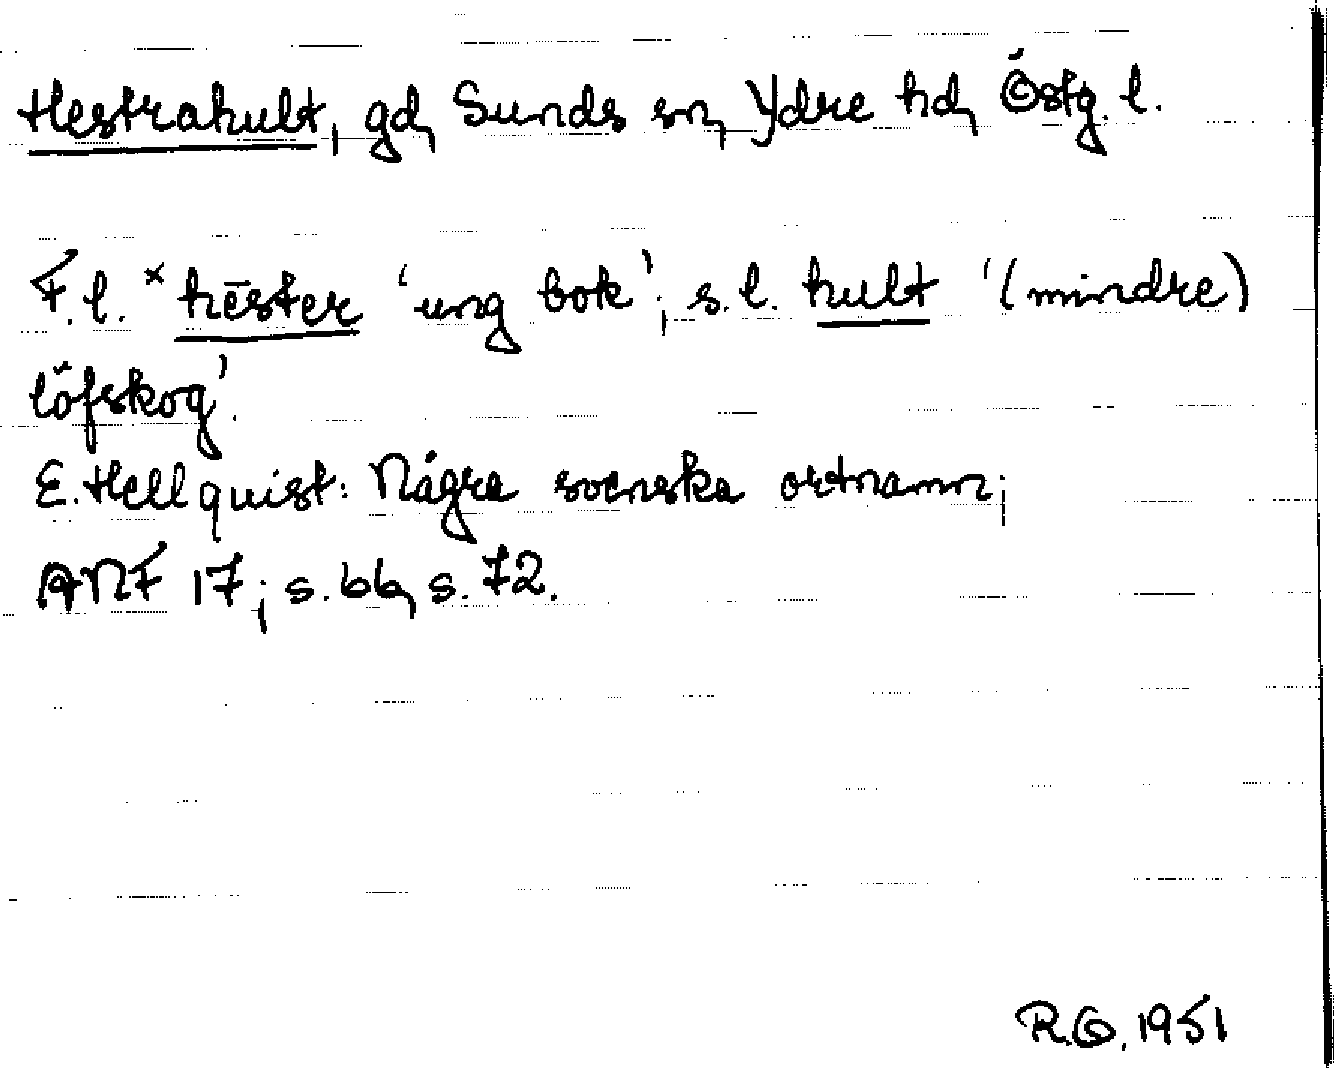 Hestrahult, gd, Sunds sn, Ydre hd, Östg. l.
F. l. *hēster 'ung bok'; s. l. hult '(mindre)
löfskog'.
E. Hellquist: Några svenska ortnamn;
ANF 17; s. 66, s. 72.
R.G. 1951